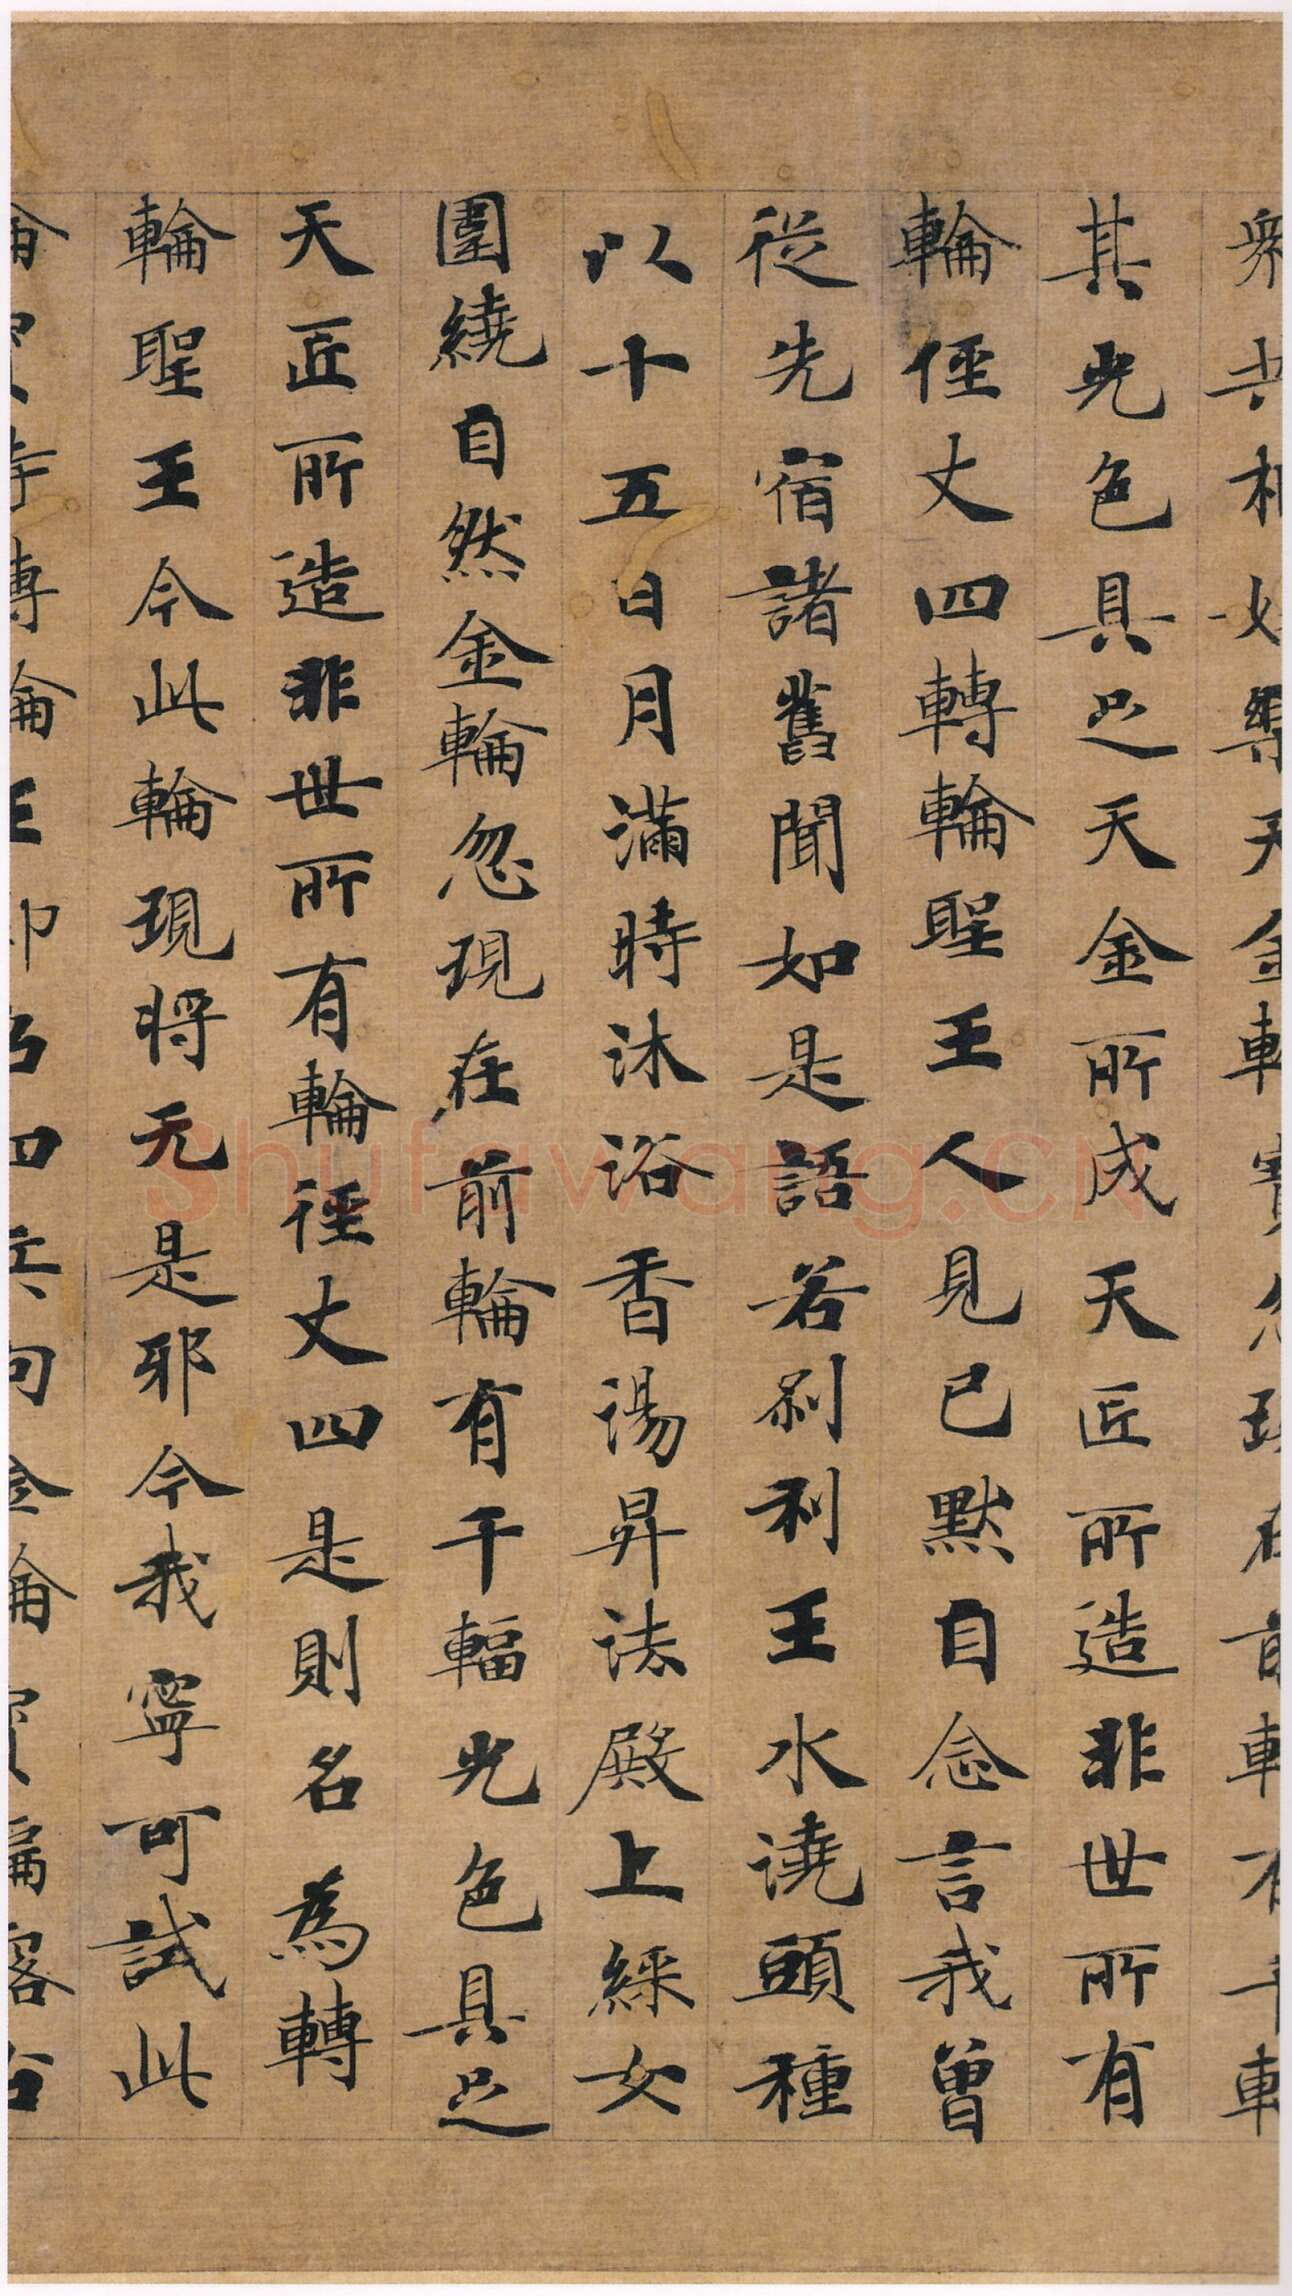 其光色具足天金所成天匠所造非世所有
輪侄丈四轉輪聖王人見已默自念言我曾
從先宿諸舊聞如是語若剎利王水澆頭種
以十五日月滿時沐浴香湯昇法殿上綵女
圍繞自然金輪忽現在前輪有千輻光色具足
天匠所造非世所有輪徑丈四是則名為轉
輪聖王今此輪現將无是邪今我寧可試此
shufawang.cn